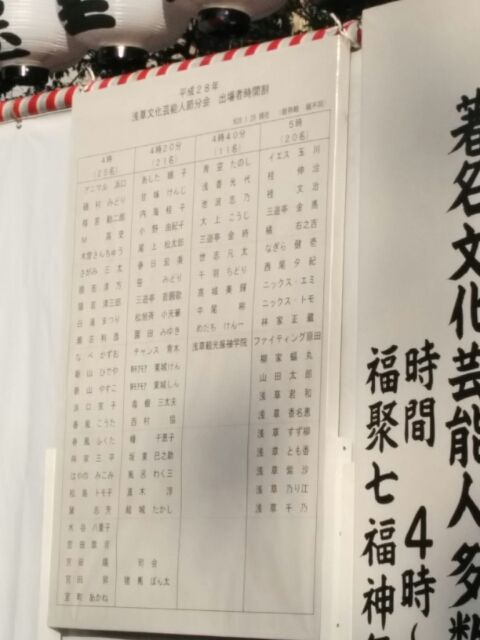 平成28年
浅草文化芸能人節分会 出場者時間割
4時
(25名)
アニマル 浜口
木曽さんちゅう
さがみ 三太
日道 まつり
なべ かずお
新山 ひでや
新山 やすこ
浜口 京子
春風 こうた
春風 ふくた
林家 三平
はやの みこみ
松島 トモ子
宮田 陽
宮田 昇
室町 あかね
4時20分
(21名)
あした 順子
甘味 けんじ
内海 桂子
小野 由紀子
尾上 松太郎
春日 宏美
笹 みどり
三遊亭 若圓歌
園田 みゆき
チャンス 青木
東城けん
東城しん
毒蝮 三太夫
西村 協
峰 千恵子
坂東 巳之助
風呂 わく三
真木 淳
結城 たかし
司会
猪馬 ぽん太
4時40分
(11名)
青空 たのし
浅香 光代
大上 こうじ
三遊亭 金時
世志 凡太
千羽 ちどり
高城 美輝
中尾 彬
めだち けんー
浅草観光振袖学院
5時
(20名)
イエス 玉川
桂 伸治
桂 文治
三遊亭 金馬
橘 右之吉
なぎら 健壱
西尾 夕紀
ニックス・エミ
ニックス・トモ
林家 正蔵
ファイティング原田
柳家 蝠丸
山田 太郎
浅草 君和
浅草 香名恵
浅草 すず柳
浅草 とも香
浅草 紫沙
浅草 乃り江
浅草 千乃
著名文化芸能人多数
時間 4時
福聚七福神